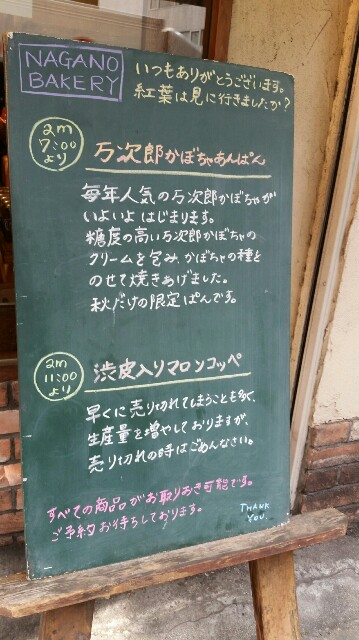 NAGANO
BAKERY
いつもありがとうございます。
紅葉は見に行きましたか?
am
7:00
より
万次郎かぼちゃあんぱん
毎年人気の万次郎かぼちゃが
いよいよ はじまります。
糖度の高い万次郎かぼちゃの
クリームを包み、かぼちゃの種を
のせて焼きあげました。
秋だけの限定ぱんです。
am
11:00
より
渋皮入りマロンコッペ
早くに売り切れてしまうことも多く、
生産量を増やしておりますが、
売り切れの時はごめんなさい。
すべての商品がお取りおき可能です。
ご予約お待ちしております。
THANK
YOU.